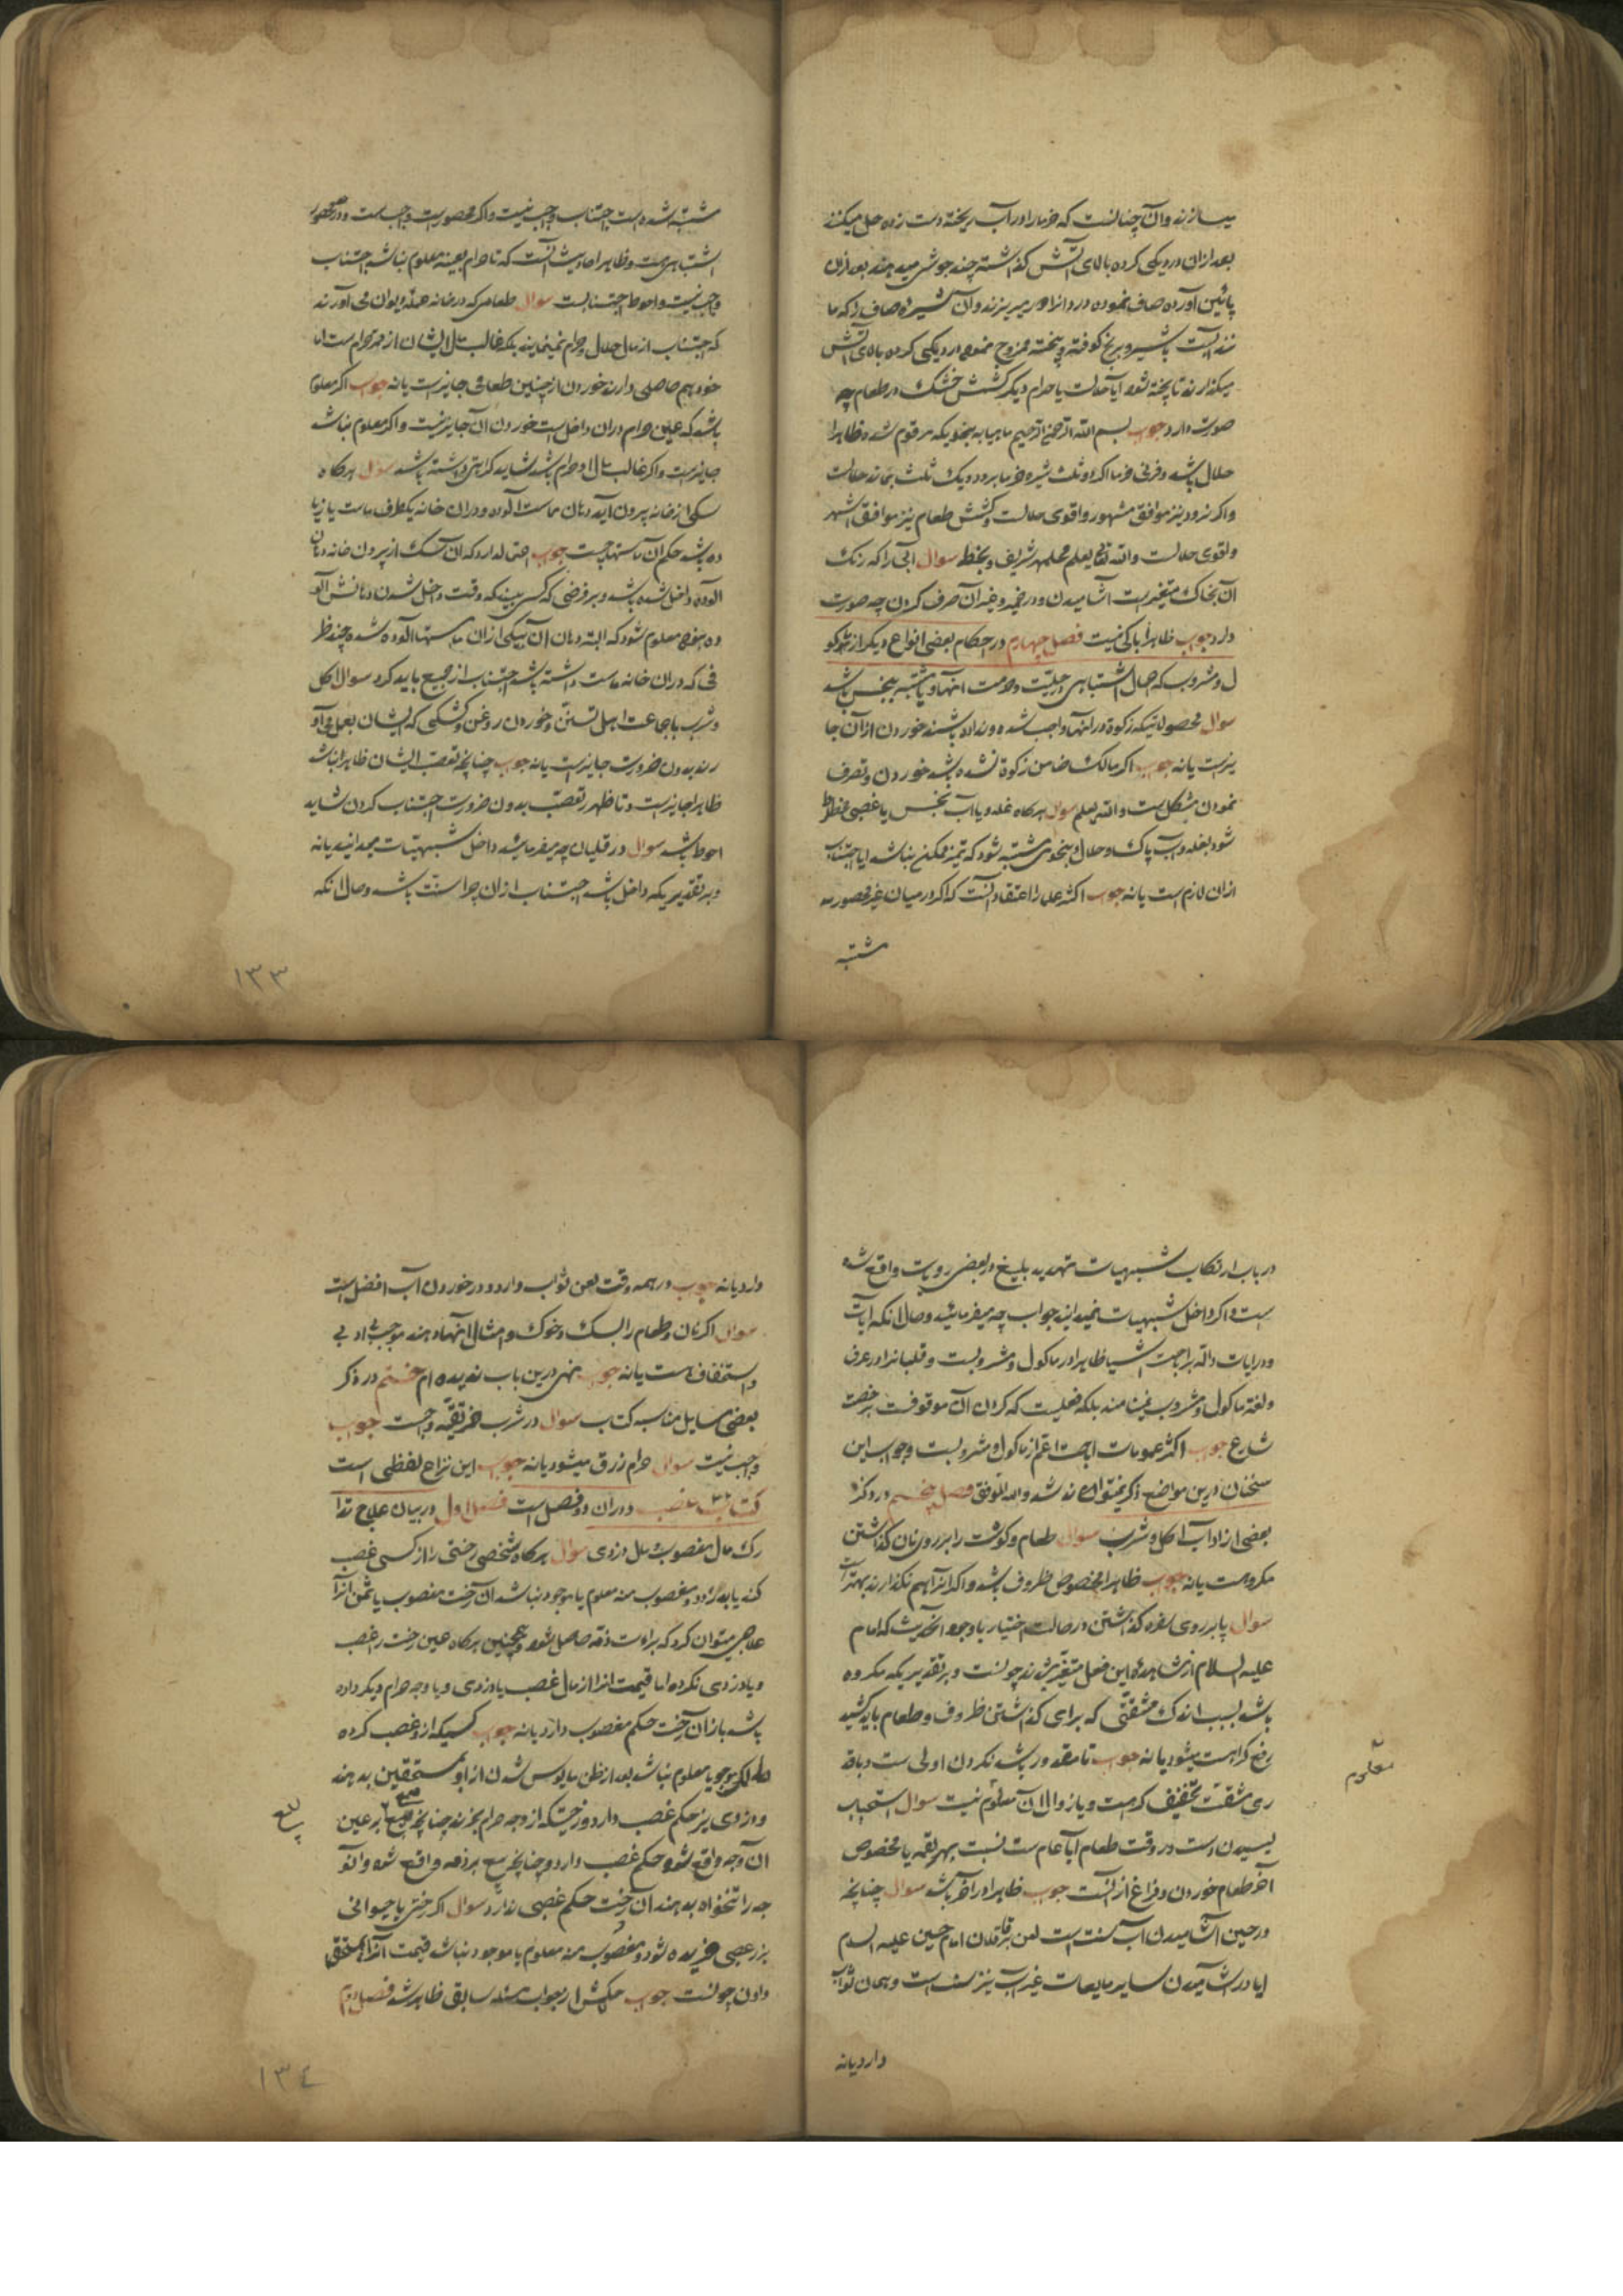 میسازند و آن چنانست که خرما را در آب ریخته دست زده حل میکنند
بعد ازان در دیکی کرده بالای آتش کذاشته چند جوش میدهند بعد ازان
پائین آورده صاف نموده درد انرا دور میریزند و آن شیره صاف را که ما
نند آبست با شیر و برنج کوفته و پخته ممزوج نموده در دیکی کرده بالای آتش
میکذارند تا پخته شود ایا حلالست یا حرام دیکر کشمش خشک در طعام چه
صورت دارد جواب بسم الله الرحمن الرحیم ماهیابه بنحویکه مرقوم شده ظاهرا
حلال باشد و فرنی خرما اکر دو ثلث شیره خرما برود و یک ثلث بماند حلالست
و اکر نرود نیز موافق مشهور و اقوی حلالست و کشمش طعام نیز موافق اشهر
و اقوی حلالست والله تعالی یعلم محلمهر شریف و بخطه سوال ابی را که رنک
آن بخاک متغیر است آشامیدن و در خمیر و غیر آن صرف کردن چه صورت
دارد جواب ظاهرا باکی نیست فصل چهارم در احکام بعضی انواع دیکر از ماکو
ل و مشروب که محال اشتباهی در حلیت و حرمت انها و یا مشتبه بنجس باشد
سوال محصولاتیکه زکوة در انها واجب شده و نداده باشند خوردن از آن جا
یزست یا نه جواب اکر مالک ضامن زکوة نشده باشد خوردن و تصرف
نمودن مشکل است والله یعلم سوال هرکاه غله و یا آب نجس یا غصبی مخلوط
شود بغله و آب پاک و حلال و بنحوی مشتبه شود که تمیز ممکن نباشد ایا اجتناب
ازان لازم است یا نه جواب اکثر علما را اعتقاد آنست که اکر در میان غیر محصور
مشتبه
مشتبه شده است اجتناب واجب نیست و اکر محصورست واجب است و در محصور
اشتباهی هست و ظاهر احادیث آنست که تا حرام بعینه معلوم نباشد اجتناب
واجب نیست و احوط اجتنابست سوال طعامی که در خانه عمله دیوان می آورند
که اجتناب از مال حلال و حرام نمینمایند بلکه غالب مال ایشان از ممر حرام است اما
خود هم حاصلی دارند خوردن از چنین طعامی جایز است یا نه جواب اکر معلوم
باشد که عین حرام دران داخل است خوردن آن جایز نیست و اکر معلوم نباشد
جایز است و اکر غالب مال او حرام باشد شاید کراهتی داشته باشد سوال هرکاه
سکی از خانه بیرون آید دهان بماست آلوده و دران خانه یکظرف ماست یا زیا
ده باشد حکم آن ماستها چیست جواب احتمال دارد که آن سک از بیرون خانه دهان
آلوده داخل شده باشد و بر فرضی که کسی ببیند که وقت داخل شدن دهانش آلو
ده نبوده معلوم شود که البته دهان آن بیکی ازان ماستها آلوده شده چند ظر
فی که دران خانه ماست داشته باشد اجتناب از جمیع باید کرد سوال اکل
و شرب با جماعت اهل تسنن و خوردن روغن و کشکی که ایشان بعمل می آو
رند بدون ضرورت جایز است یا نه جواب چنانچه تعصب ایشان ظاهر نباشد
ظاهرا جایز است و تا ظهور تعصب بدون ضرورت اجتناب کردن شاید
احوط باشد سوال در قلیان چه میفرمایند داخل شبهیات میدانید یا نه
و بر تقدیریکه داخل باشد اجتناب ازان چرا سنت باشد و حال انکه
۱۳۳
در باب ارتکاب شبهیات تهدید بلیغ در بعضی روایات واقع شده
است و اکر داخل شبهیات نمیدانید جواب چه میفرمائید و حال انکه ایات
و روایات داله بر اباحت اشیا ظاهرا در ماکول و مشروبست و قلیانرا در عرف
و لغة ماکول و مشروب نمینامند بلکه فعلیست که کردن آن موقوفست برخصت
شارع جواب اکثر عمومات اباحت اعم از ماکول و مشروبست و جواب این
سخنان درین مواضع ذکر نمیتواند شد والله الموفق فصل پنجم در ذکر
بعضی از اداب اکل و شرب سوال طعام و کوشت را بر روی نان کذاشتن
مکروهست یا نه جواب ظاهرا مخصوص ظروف باشد و اکر انرا هم نکذارند بهتر است
سوال پا بر روی سفره کذاشتن در حالت اختیار با وجود آنحدیث که امام
علیه السلام از مشاهده این فعل متغیر شدند چونست و بر تقدیریکه مکروه
باشد بسبب اندک مشقتی که برای کذاشتن ظروف و طعام باید کشید
رفع کراهت میشود یا نه جواب تا مقدور باشد نکردن اولی است و باقد
ری مشقت تخفیف کراهت و یا زوال آن معلوم نیست سوال استحباب
لیسیدن دست در وقت طعام ایا عام ست نسبت بهر لقمه یا مخصوص
آخر طعام خوردن و فراغ ازانست جواب ظاهرا در اخر باشد سوال چنانچه
در حین اشامیدن آب سنت است لعن بر قاتلان امام حسین علیه السلام
ایا در اشامیدن سایر مایعات غیر آب نیز سنت است و همان ثواب
معلوم
دارد یا نه
دارد یا نه جواب در همه وقت لعن ثواب دارد و در خوردن آب افضل است
سوال اکر نان و طعام را بسک و خوک و امثال انها دهند موجب بی ادبی
و استخفاف هست یا نه جواب نهی درین باب ندیده ام ختم در ذکر
بعضی مسایل مناسبه کتاب سوال در شرب خمر تقیه واجبست جواب
واجب نیست سوال حرام رزق میشود یا نه جواب این نزاع لفظی است
کتاب غصب و دران دو فصل است فصل اول در بیان علاج تدا
رک مال مغصوب و مال دزدی سوال هرکاه شخصی رختی را از کسی غصب
کند یا بدزدد و مغصوب منه معلوم یا موجود نباشد ان رخت مغصوب یا ثمن انرا
علاجی میتوان کرد که براءت ذمه حاصل شود و همچنین هرکاه عین رخت را غصب
و یا دزدی نکرده اما قیمت انرا از مال غصب یا دزدی و یا وجه حرام دیکر داده
باشد باز ان رخت حکم مغصوب دارد یا نه جواب کسیکه ازو غصب کرده
اند اکر موجود یا معلوم نباشد بعد از ظن مایوس شدن ازاو بمستحقین بدهند
و دزدی نیز حکم غصب دارد و رختیکه از وجه حرام بخرند چنانچه بیع بر عین
ان وجه واقع شود حکم غصب دارد و چنانچه بیع بر ذمه واقع شود و انو
جه را تنخواه بدهند آن رخت حکم غصبی ندارد سوال اکر رختی یا حیوانی
بزر غصبی خریده شود و مغصوب منه معلوم یا موجود نباشد قیمت انرا بمستحق
دادن چونست جواب حکمش از جواب مسئله سابق ظاهر شد فصل دوم
۱۳٤